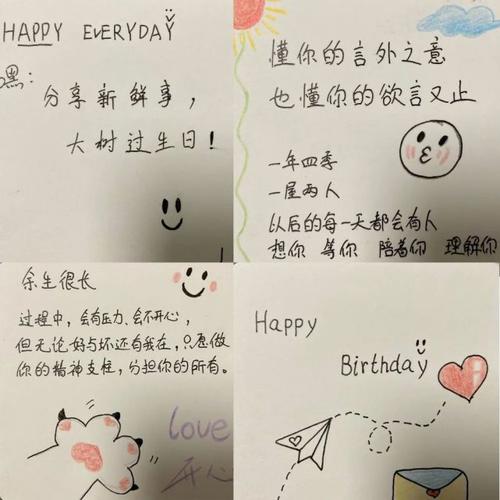 HAPPY EVERYDAY
嘿:
分享新鲜事,
大树过生日!
懂你的言外之意
也懂你的欲言又止
一年四季
一屋两人
以后的每一天都会有人
想你 等你 陪着你 理解你
余生很长
过程中,会有压力、会不开心,
但无论好与坏还有我在,只愿做
你的精神支柱,分担你的所有。
love
开心
Happy
Birthday